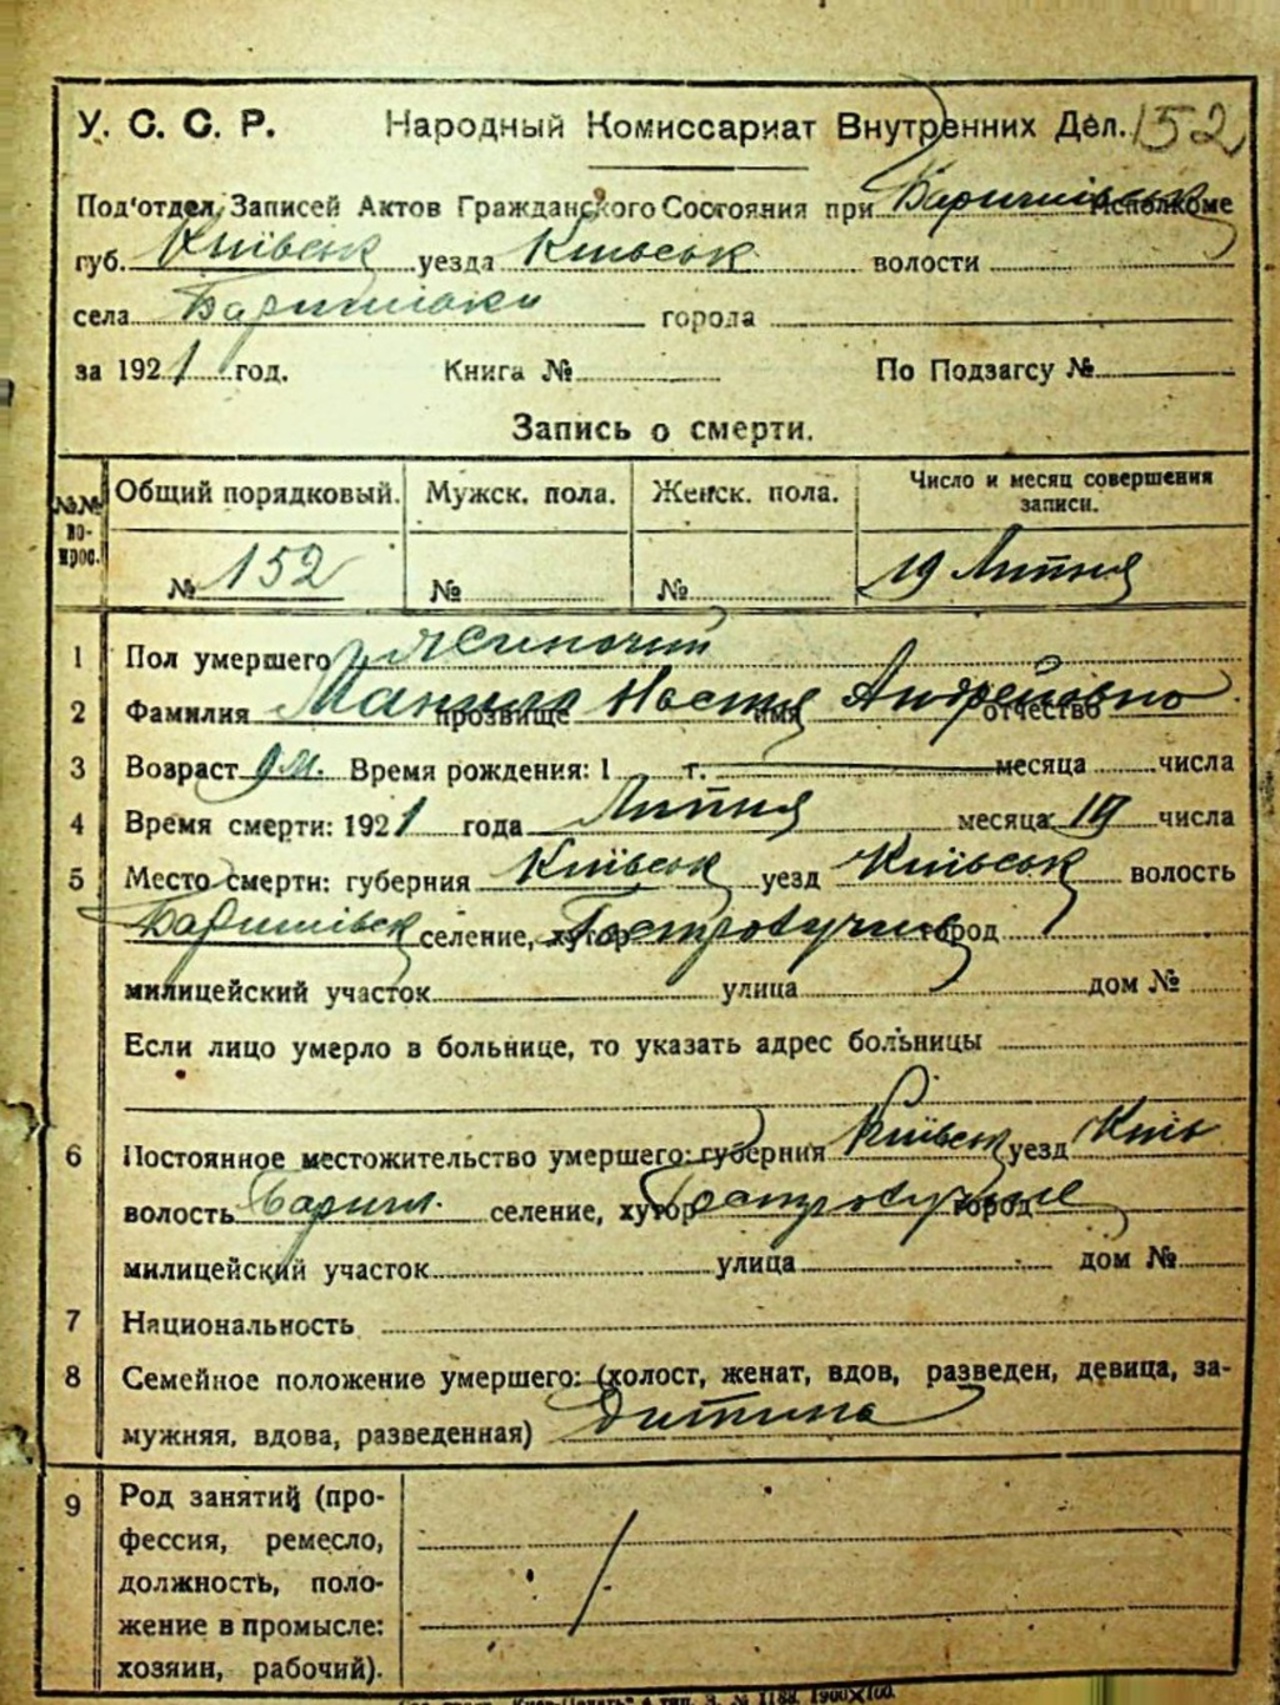 У. С. С. Р. Народный Комиссариат Внутренних Дел. 152
Под'отдел Записей Актов Гражданского Состояния при Баришівськ Исполкоме
губ. Київськ уезда Київськ волости
села Баришівки города
за 1921 год. Книга № По Подзагсу №
Запись о смерти.
№№ во-прос. Общий порядковый. Мужск. пола. Женск. пола. Число и месяц совершения записи.
№ 152 № № 19 Липня
1 Пол умершего жіночий
2 Фамилия прозвище Настя имя Андрейовна отчество
3 Возраст 9 м. Время рождения: 1 г. месяца числа
4 Время смерти: 1921 года Липня месяца 19 числа
5 Место смерти: губерния Київськ уезд Київськ волость
Баришівськ селение, хутор город
милицейский участок улица дом №
Если лицо умерло в больнице, то указать адрес больницы
6 Постоянное местожительство умершего: губерния Київськ уезд Київ
волость Бариш. селение, хутор город
милицейский участок улица дом №
7 Национальность
8 Семейное положение умершего: (холост, женат, вдов, разведен, девица, за-
мужняя, вдова, разведенная) дитина
9 Род занятий (про-
фессия, ремесло,
должность, поло-
жение в промысле:
хозяин, рабочий).